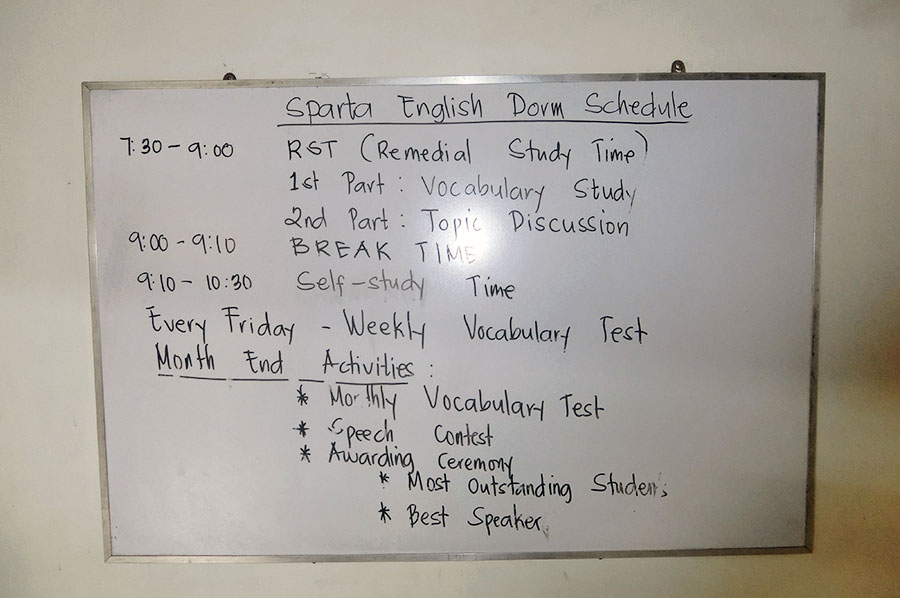 Sparta English Dorm Schedule
7:30 - 9:00 RST (Remedial Study Time)
1st Part : Vocabulary Study
2nd Part : Topic Discussion
9:00 - 9:10 BREAK TIME
9:10 - 10:30 Self-study Time
Every Friday - Weekly Vocabulary Test
Month End Activities :
* Monthly Vocabulary Test
* Speech Contest
* Awarding Ceremony
* Most Outstanding Students
* Best Speaker